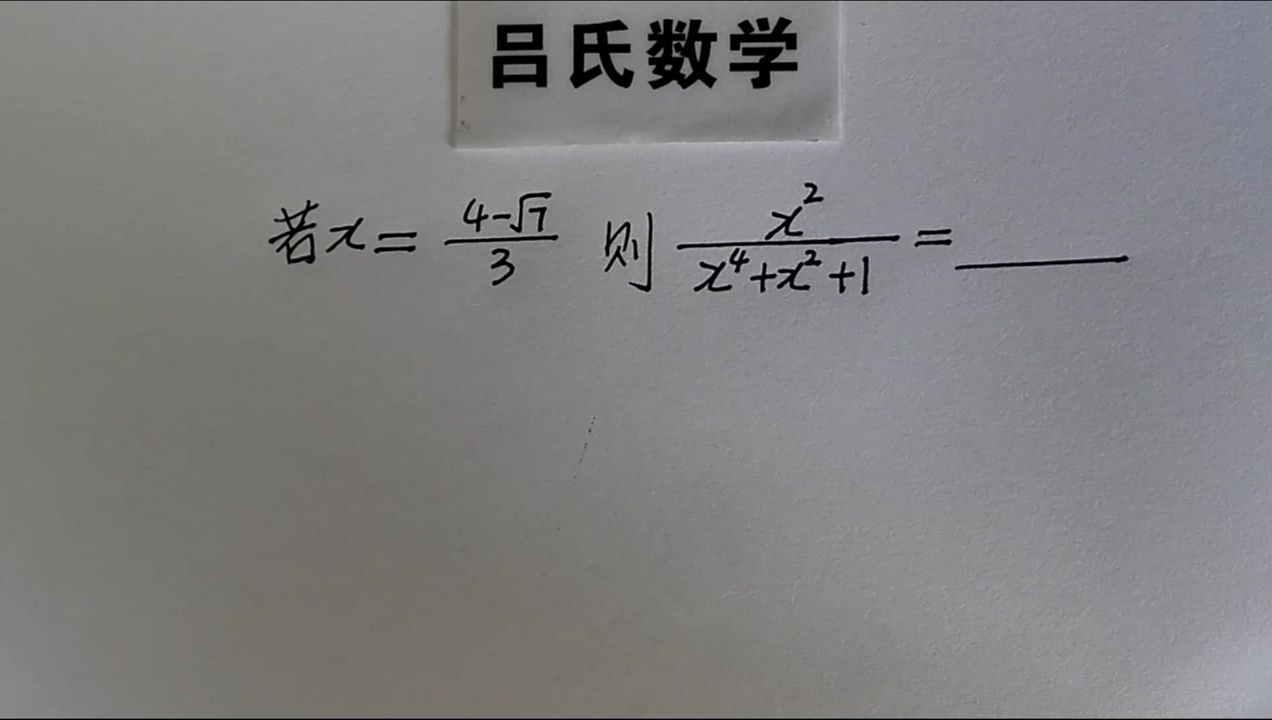 吕氏数学
若x=\frac{4-\sqrt{7}}{3} 则 \frac{x^2}{x^4+x^2+1}=____